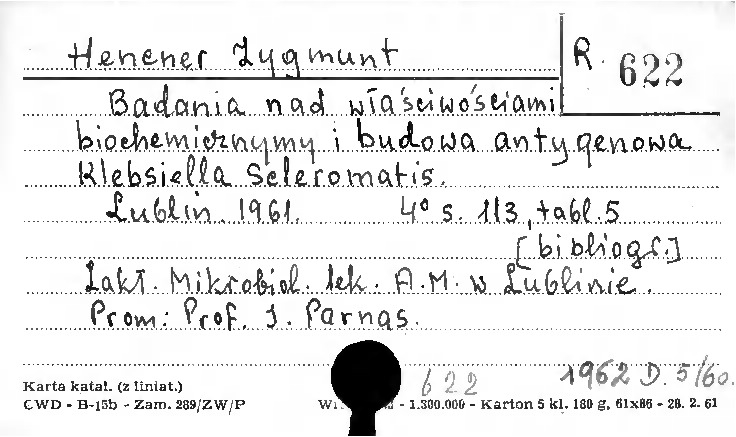 Henener Zygmunt
R. 622
Badania nad właściwościami
biochemicznymy i budowa antygenowa
Klebsiella Scleromatis.
Lublin. 1961. 4° s. 113, tabl. 5
[bibliogr.]
Zakł. Mikrobiol. lek. A.M. w Lublinie.
Prom: Prof. J. Parnas.
622 1962 D. 5/60.
Karta katal. (z liniat.)
CWD - B-15b - Zam. 289/ZW/P - 1.300.000 - Karton 5 kl. 180 g, 61x86 - 28. 2. 61